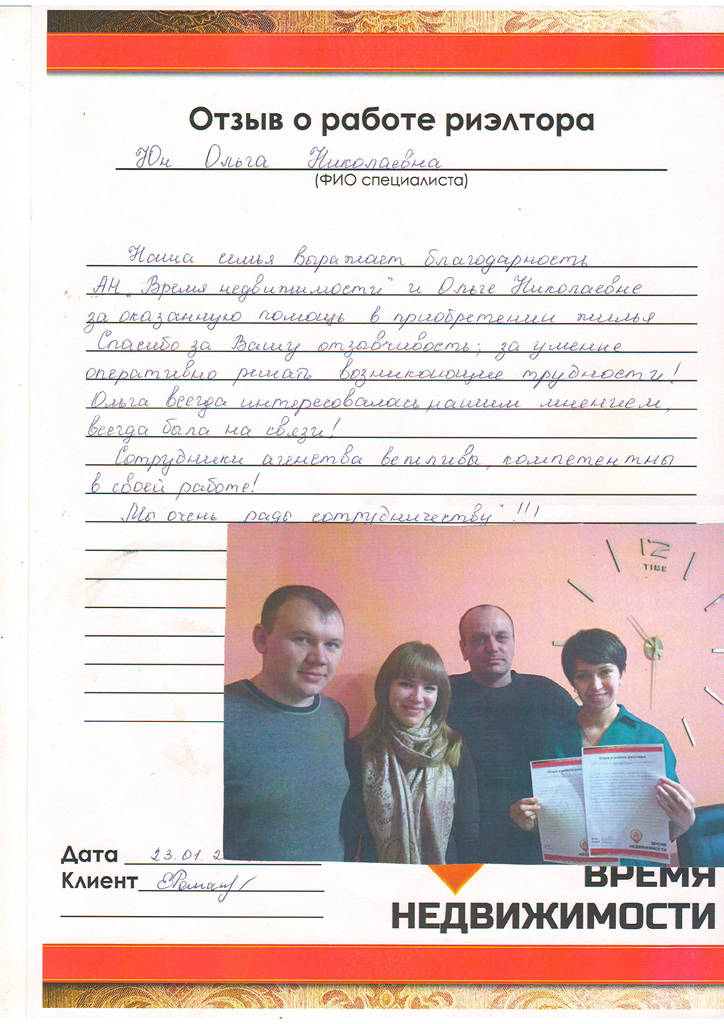 Отзыв о работе риэлтора
Юн Ольга Николаевна
(ФИО специалиста)
Наша семья выражает благодарность
АН „Время недвижимости" и Ольге Николаевне
за оказанную помощь в приобретении жилья
Спасибо за Вашу отзывчивость; за умение
оперативно решать возникающие трудности!
Ольга всегда интересовалась нашим мнением,
всегда была на связи!
Сотрудники агенства вежливы, компетентны
в своей работе!
Мы очень рады сотрудничеству !!!
12
TIME
Отзыв о работе риэлтора
Отзыв о работе риэлтора
ВРЕМЯ
НЕДВИЖИМОСТИ
Дата 23.01.2
Клиент
ВРЕМЯ
НЕДВИЖИМОСТИ